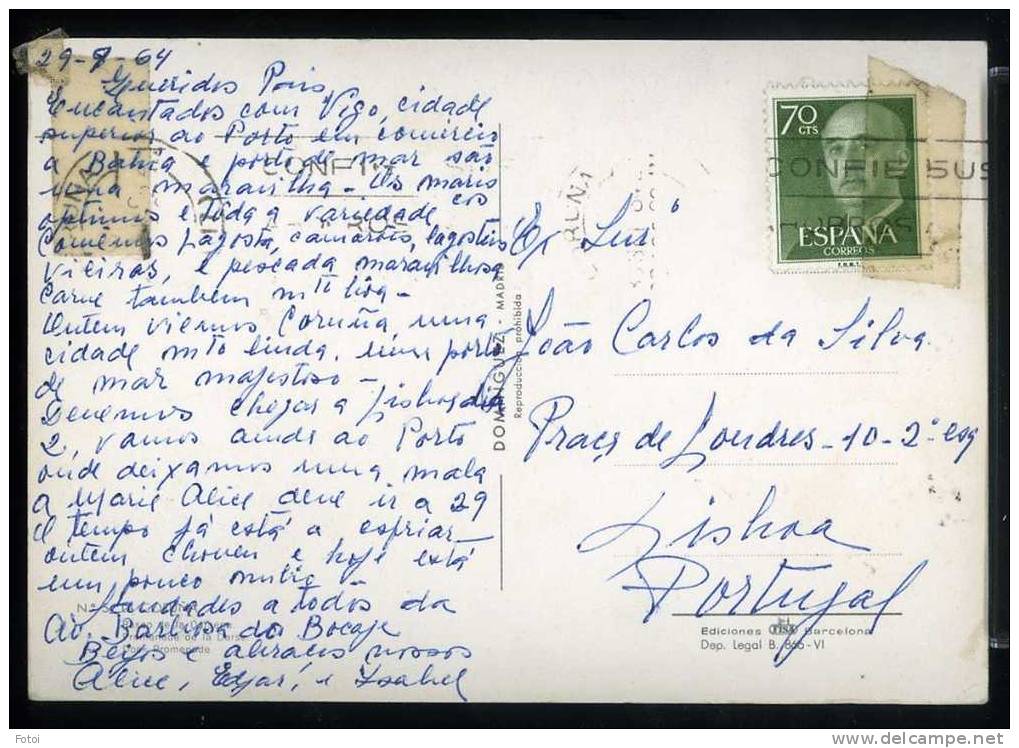 29-9-64
Queridos Pais
Encantados com Vigo, cidade
superior ao Porto em comercio
a Bahia e porto de mar são
uma maravilha - Os maris
cos
optimos e toda a variedade
Comemos lagosta, camarões, lagostins
vieiras, e pescada maravilhosa
Carne tambem mto boa -
Ontem viemos Coruña, uma
cidade mto linda, num porto
de mar majestoso -
Devemos chegar a Lisboa dia
2, vamos ainda ao Porto
onde deixamos uma mala
a Marie Alice deve ir a 29
O tempo já está a esfriar
ontem choveu e hoje está
um pouco
Saudades a todos da
Av. Barbosa du Bocage
Beijos e abraços nossos
Alice, Edgar, e Isabel
Paseo de la Dársena
Promenade de la Darse
Promenade
DOMINGUEZ - MADRID
Reproducción prohibida
CONFIE
CORUÑA
70
CTS
ESPAÑA
CORREOS
F.N.M.T.
CONFIE SUS
Ex
João Carlos da Silva
Praça de Londres - 10 - 2º esq
Lisboa
Portugal
Ediciones FISA Barcelona
Dep. Legal B. 866-VI
Fotoi
http://fotoi.delcampe.net